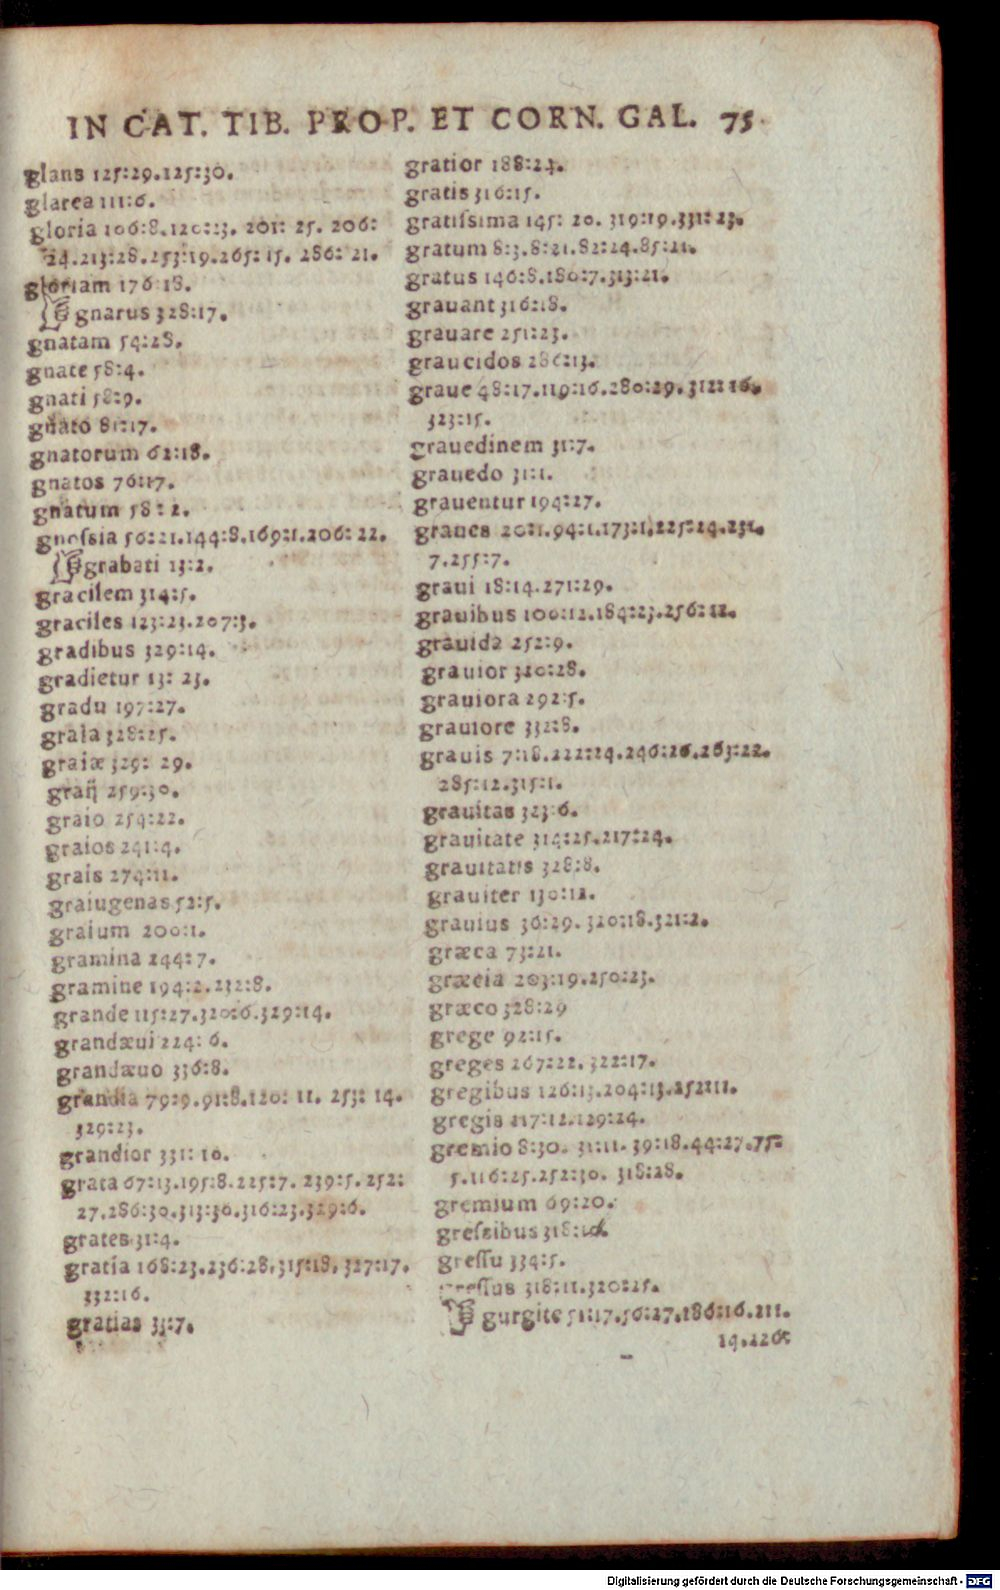 IN CAT. TIB. PROP. ET CORN. GAL. 75
glans 125:29.125:30.
glarea 111:6.
gloria 106:8.120:23. 201: 25. 206:
24.213:28.253:19.265: 15. 286: 21.
gloriam 176:18.
gnarus 328:17.
gnatam 54:28.
gnate 58:4.
gnati 58:9.
gnato 81:17.
gnatorum 61:18.
gnatos 76:17.
gnatum 58: 2.
gnossia 56:21.144:8.169:1.206: 22.
grabati 13:2.
gracilem 314:5.
graciles 123:23.207:3.
gradibus 329:14.
gradietur 13: 23.
gradu 197:27.
graia 328:25.
graiæ 329: 29.
graij 259:30.
graio 254:22.
graios 241:4.
grais 274:11.
graiugenas 52:5.
graium 200:1.
gramina 244: 7.
gramine 194:2.232:8.
grande 115:27.320:6.329:14.
grandæui 224: 6.
grandæuo 336:8.
grandia 79:9.91:8.120: 11. 253: 14.
329:23.
grandior 331: 10.
grata 67:13.195:8.225:7. 239:5. 252:
27.286:30.313:30.316:23.329:6.
grates 31:4.
gratia 168:23.236:28.315:18. 327:17.
332:16.
gratias 33:7.
gratior 188:24.
gratis 316:15.
gratissima 145: 20. 319:19.331: 23.
gratum 8:3.8:21.82:24.85:21.
gratus 146:8.180:7.313:21.
grauant 316:18.
grauare 251:23.
graucidos 286:13.
graue 48:17.119:16.280:29. 312: 16.
323:15.
grauedinem 31:7.
grauedo 31:1.
grauentur 194:27.
graues 20:1.94:1.173:1.225:24.231.
7.255:7.
graui 18:14.271:29.
grauibus 100:12.184:23.256:12.
grauida 252:9.
grauior 320:28.
grauiora 292:5.
grauiore 332:8.
grauis 7:18.222:24.246:26.263:22.
285:12.315:1.
grauitas 323:6.
grauitate 314:25.217:24.
grauitatis 328:8.
grauiter 130:12.
grauius 36:29. 320:18.321:2.
græca 73:21.
græcia 203:19.250:23.
græco 328:29
grege 92:15.
greges 267:22. 322:17.
gregibus 126:13.204:13.252:11.
gregis 117:12.129:24.
gremio 8:30. 31:11. 39:18.44:27.75:
5.116:25.252:30. 318:28.
gremium 69:20.
gressibus 318:
gressu 334:5.
gressus 318:11.320:25.
gurgite 51:17.56:27.186:16.211.
14.226:
Digitalisierung gefördert durch die Deutsche Forschungsgemeinschaft - DFG